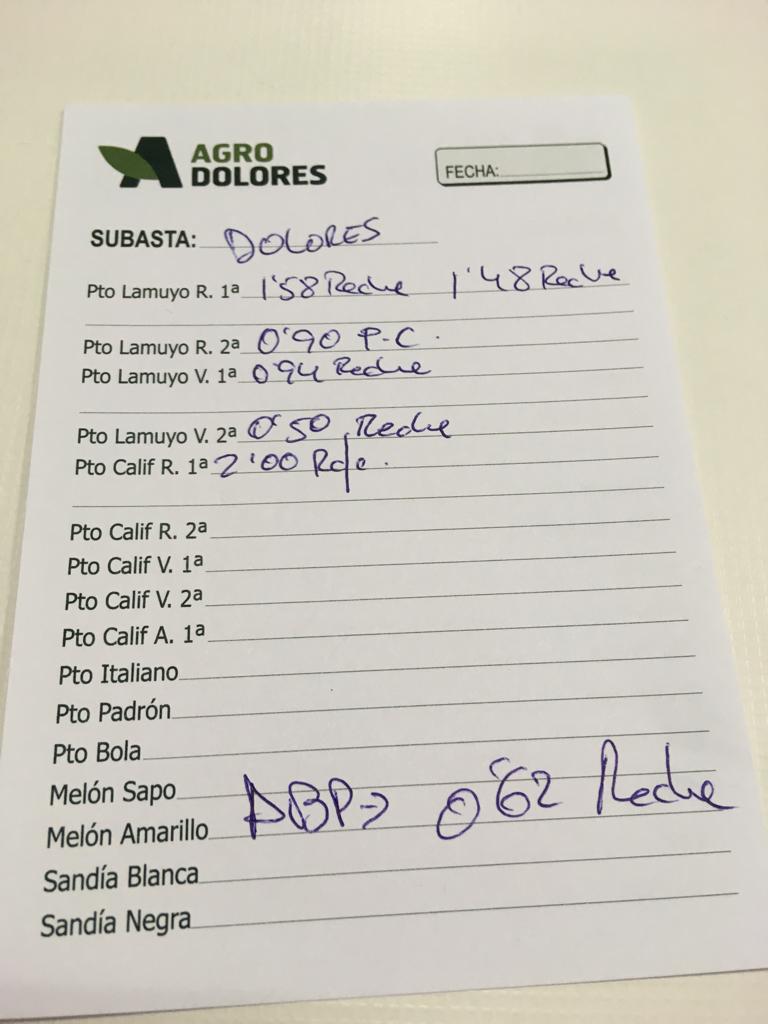 AGRO
DOLORES
FECHA:
SUBASTA: DOLORES
Pto Lamuyo R. 1ª 1'58 Reche 1'48 Reche
Pto Lamuyo R. 2ª 0'90 P-C.
Pto Lamuyo V. 1ª 0'94 Reche
Pto Lamuyo V. 2ª 0'50 Reche
Pto Calif R. 1ª 2'00
Pto Calif R. 2ª
Pto Calif V. 1ª
Pto Calif V. 2ª
Pto Calif A. 1ª
Pto Italiano
Pto Padrón
Pto Bola
Melón Sapo
Melón Amarillo
ABP→ 0'62 Reche
Sandía Blanca
Sandía Negra